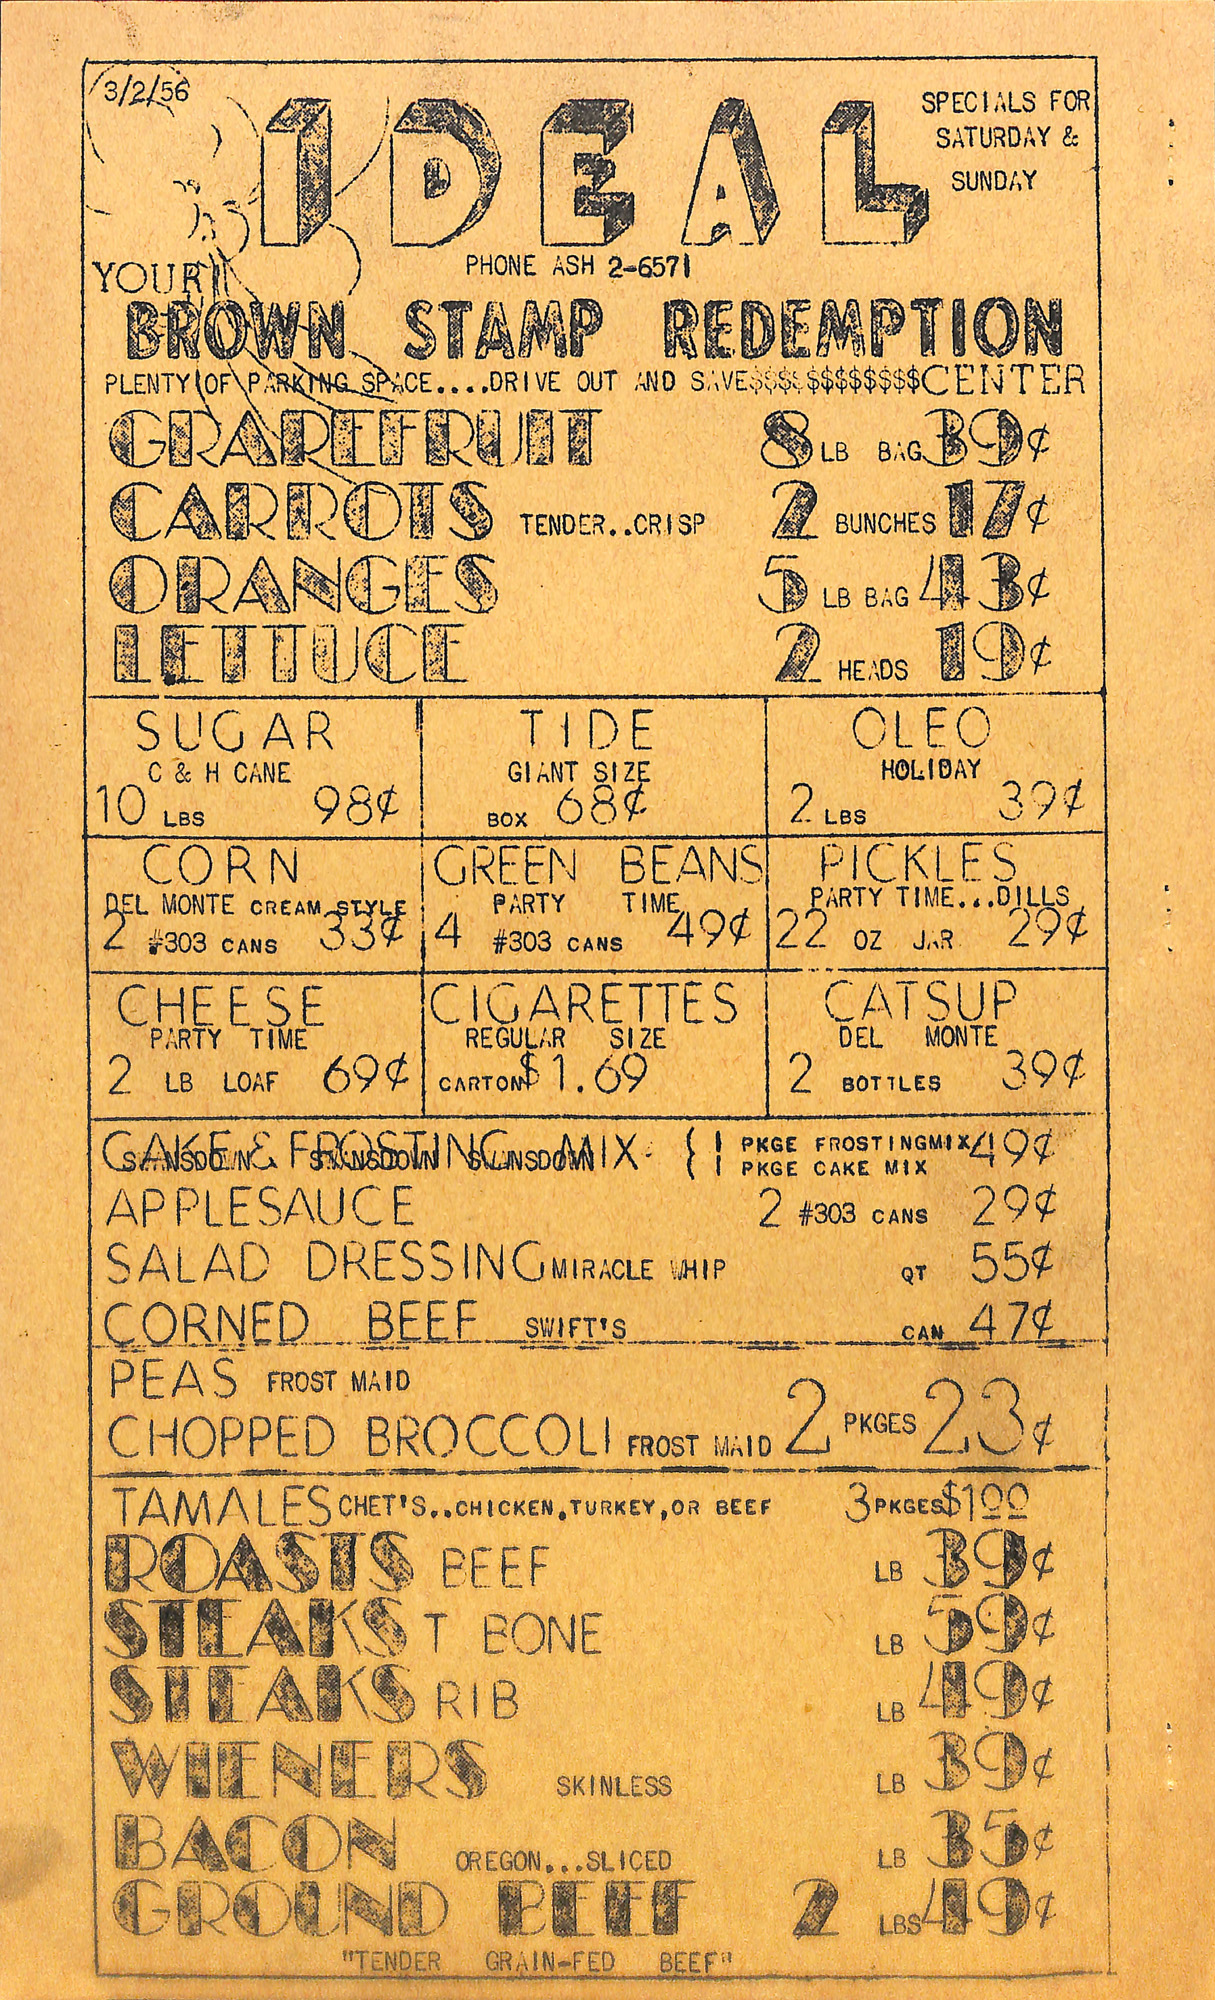 3/2/56
IDEAL
SPECIALS FOR
SATURDAY &
SUNDAY
PHONE ASH 2-6571
YOUR
BROWN STAMP REDEMPTION
PLENTY OF PARKING SPACE....DRIVE OUT AND SAVE$$$$$$$$$$$$CENTER
GRAPEFRUIT 8 LB BAG 39¢
CARROTS TENDER..CRISP 2 BUNCHES 17¢
ORANGES 5 LB BAG 43¢
LETTUCE 2 HEADS 19¢
SUGAR
C & H CANE
10 LBS 98¢
TIDE
GIANT SIZE
BOX 68¢
OLEO
HOLIDAY
2 LBS 39¢
CORN
DEL MONTE CREAM STYLE
2 #303 CANS 33¢
GREEN BEANS
PARTY TIME
4 #303 CANS 49¢
PICKLES
PARTY TIME...DILLS
22 OZ JAR 29¢
CHEESE
PARTY TIME
2 LB LOAF 69¢
CIGARETTES
REGULAR SIZE
CARTON $1.69
CATSUP
DEL MONTE
2 BOTTLES 39¢
CAKE & FROSTING MIX { 1 PKGE FROSTINGMIX 49¢
SWANSDOWN SWANSDOWN SWANSDOWN { 1 PKGE CAKE MIX
APPLESAUCE 2 #303 CANS 29¢
SALAD DRESSING MIRACLE WHIP QT 55¢
CORNED BEEF SWIFT'S CAN 47¢
PEAS FROST MAID
CHOPPED BROCCOLI FROST MAID 2 PKGES 23¢
TAMALES CHET'S..CHICKEN,TURKEY,OR BEEF 3 PKGES $1.00
ROASTS BEEF LB 39¢
STEAKS T BONE LB 59¢
STEAKS RIB LB 49¢
WIENERS SKINLESS LB 39¢
BACON OREGON...SLICED LB 35¢
GROUND BEEF 2 LBS 49¢
"TENDER GRAIN-FED BEEF"